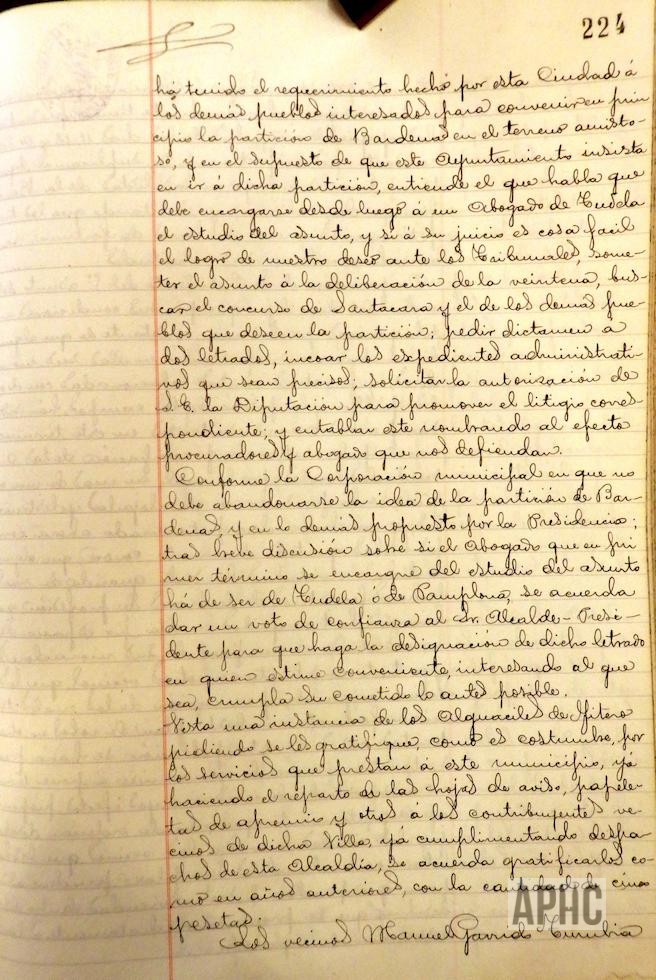 224
há tenido el requerimiento hecho por esta Ciudad á
los demás pueblos interesados para convenir en prin
cipio la partición de Bardenas en el terreno amisto-
so, y en el supuesto de que este Ayuntamiento insista
en ir á dicha partición, entiende el que habla que
debe encargarse desde luego á un Abogado de Tudela
el estudio del asunto, y si á su juicio es cosa facil
el logro de nuestro deseo ante los Tribunales, some-
ter el asunto á la deliberación de la veintena, bus-
car el concurso de Santacara y el de los demás pue-
blos que deseen la partición; pedir dictamen a
dos letrados, incoar los expedientes administrati-
vos que sean precisos; solicitar la autorización de
S. E. la Diputación para promover el litigio corres-
pondiente; y entablar este nombrando al efecto
procuradores y abogado que nos defiendan.
Conforme la Corporación municipal en que no
debe abandonarse la idea de la partición de Bar-
denas, y en lo demás propuesto por la Presidencia;
tras breve discusión sobre si el Abogado que en pri
mer término se encargue del estudio del asunto
há de ser de Tudela ó de Pamplona, se acuerda
dar un voto de confianza al Sr. Alcalde-Presi-
dente para que haga la designación de dicho letrado
en quien estime conveniente, interesando al que
sea, cumpla su cometido lo antes posible.
Vista una instancia de los Alguaciles de Fitero
pidiendo se les gratifique, como es costumbre, por
los servicios que prestan á este municipio, yá
haciendo el reparto de las hojas de aviso, papele-
tas de apremio y otros á los contribuyentes ve-
cinos de dicha Villa, yá cumplimentando despa-
chos de esta Alcaldía, se acuerda gratificarlos co-
mo en años anteriores, con la cantidad de cinco
pesetas.
Los vecinos Manuel Garrido Turubia
APHC